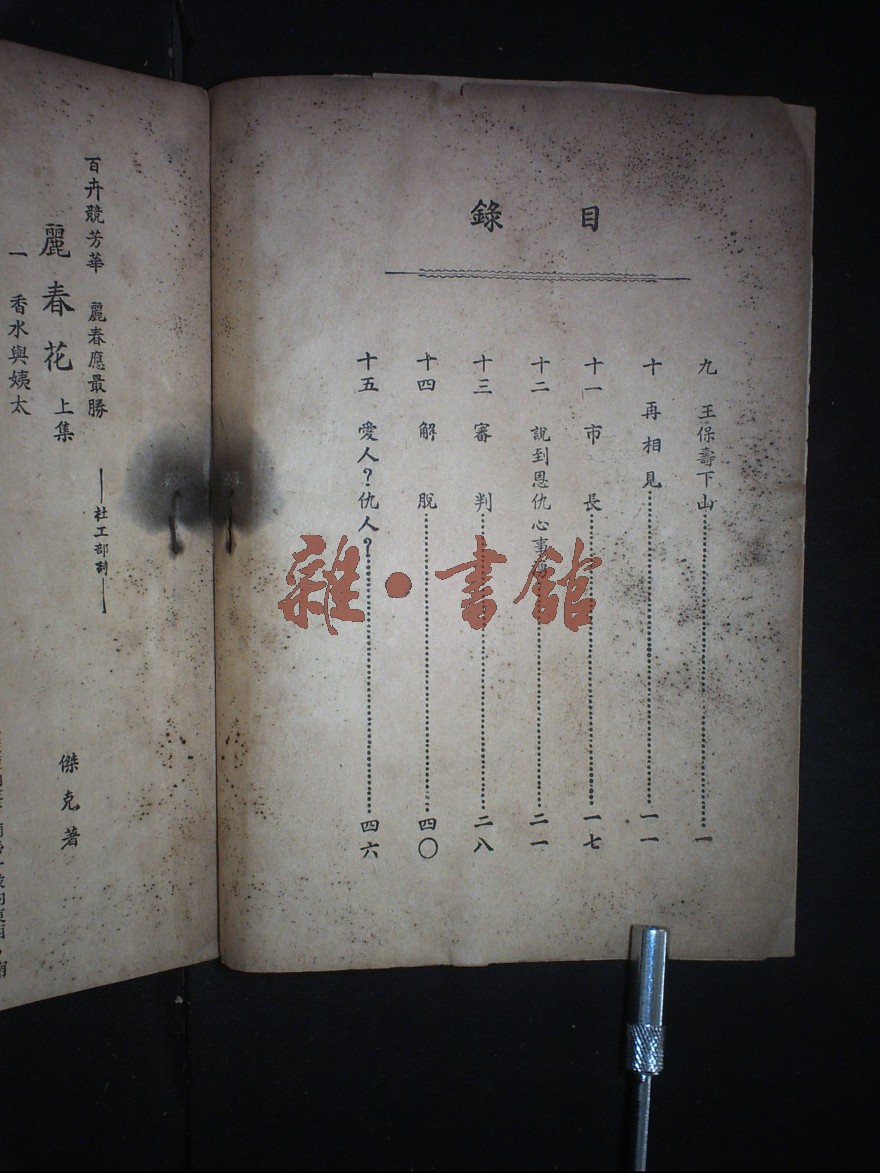 目錄
九 王保壽下山 一
十 再相見 一一
十一 市長 一七
十二 說到恩仇心事 二一
十三 審判 二八
十四 解脫 四〇
十五 愛人？仇人？ 四六
雜·書館
百卉競芳華 麗春應最勝
——杜工部詩——
麗春花 上集
傑克著
一 香水與姨太